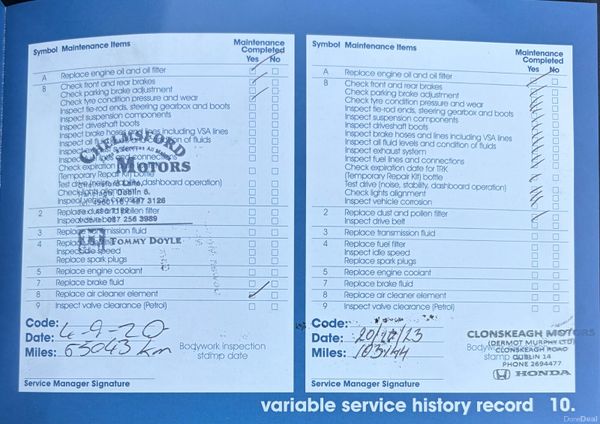 Symbol Maintenance Items
Maintenance
Completed
Yes No
A Replace engine oil and oil filter
B Check front and rear brakes
Check parking brake adjustment
Check tyre condition pressure and wear
Inspect tie-rod ends, steering gearbox and boots
Inspect suspension components
Inspect driveshaft boots
Inspect brake hoses and lines including VSA lines
CHELMSFORD
MOTORS
Chelmsford Lane,
2 Replace dust and pollen filter
3 Replace transmission fluid
TOMMY DOYLE
Inspect idle speed
Replace spark plugs
5 Replace engine coolant
7 Replace brake fluid
8 Replace air cleaner element
9 Inspect valve clearance (Petrol)
Code:
Date: 4-9-20
Miles: 65043 km
Bodywork inspection
stamp date
Service Manager Signature
Symbol Maintenance Items
Maintenance
Completed
Yes No
A Replace engine oil and oil filter
B Check front and rear brakes
Check parking brake adjustment
Check tyre condition pressure and wear
Inspect tie-rod ends, steering gearbox and boots
Inspect suspension components
Inspect driveshaft boots
Inspect brake hoses and lines including VSA lines
Inspect all fluid levels and condition of fluids
Inspect exhaust system
Inspect fuel lines and connections
Check expiration date for TRK
(Temporary Repair Kit) bottle
Test drive (noise, stability, dashboard operation)
Check lights alignment
Inspect vehicle corrosion
2 Replace dust and pollen filter
Inspect drive belt
3 Replace transmission fluid
4 Replace fuel filter
Inspect idle speed
Replace spark plugs
5 Replace engine coolant
7 Replace brake fluid
8 Replace air cleaner element
9 Inspect valve clearance (Petrol)
Code:
Date:
Miles:
CLONSKEAGH MOTORS
(DERMOT MURPHY LTD)
CLONSKEAGH ROAD
DUBLIN 14
PHONE 2694477
HONDA
Service Manager Signature
variable service history record 10.
DoneDeal